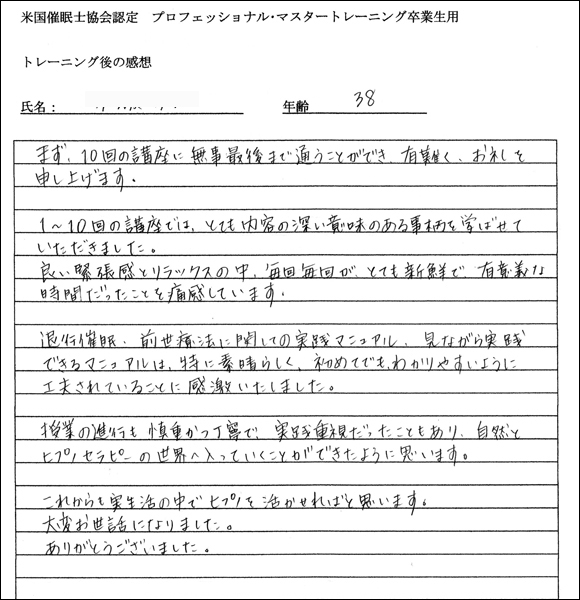 米国催眠士協会認定　プロフェッショナル・マスタートレーニング卒業生用
トレーニング後の感想
氏名：
年齢　38
まず、10回の講座に無事最後まで通うことができ、有難く、お礼を
申し上げます。
1～10回の講座では、とても内容の深い意味のある事柄を学ばせて
いただきました。
良い緊張感とリラックスの中、毎回毎回が、とても新鮮で、有意義な
時間だったことを痛感しています。
退行催眠、前世療法に関しての実践マニュアル、見ながら実践
できるマニュアルは、特に素晴らしく、初めてでもわかりやすいように
工夫されていることに感激いたしました。
授業の進行も慎重かつ丁寧で、実践重視だったこともあり、自然と
ヒプノセラピーの世界へ入っていくことができたように思います。
これからも実生活の中でヒプノを活かせればと思います。
大変お世話になりました。
ありがとうございました。